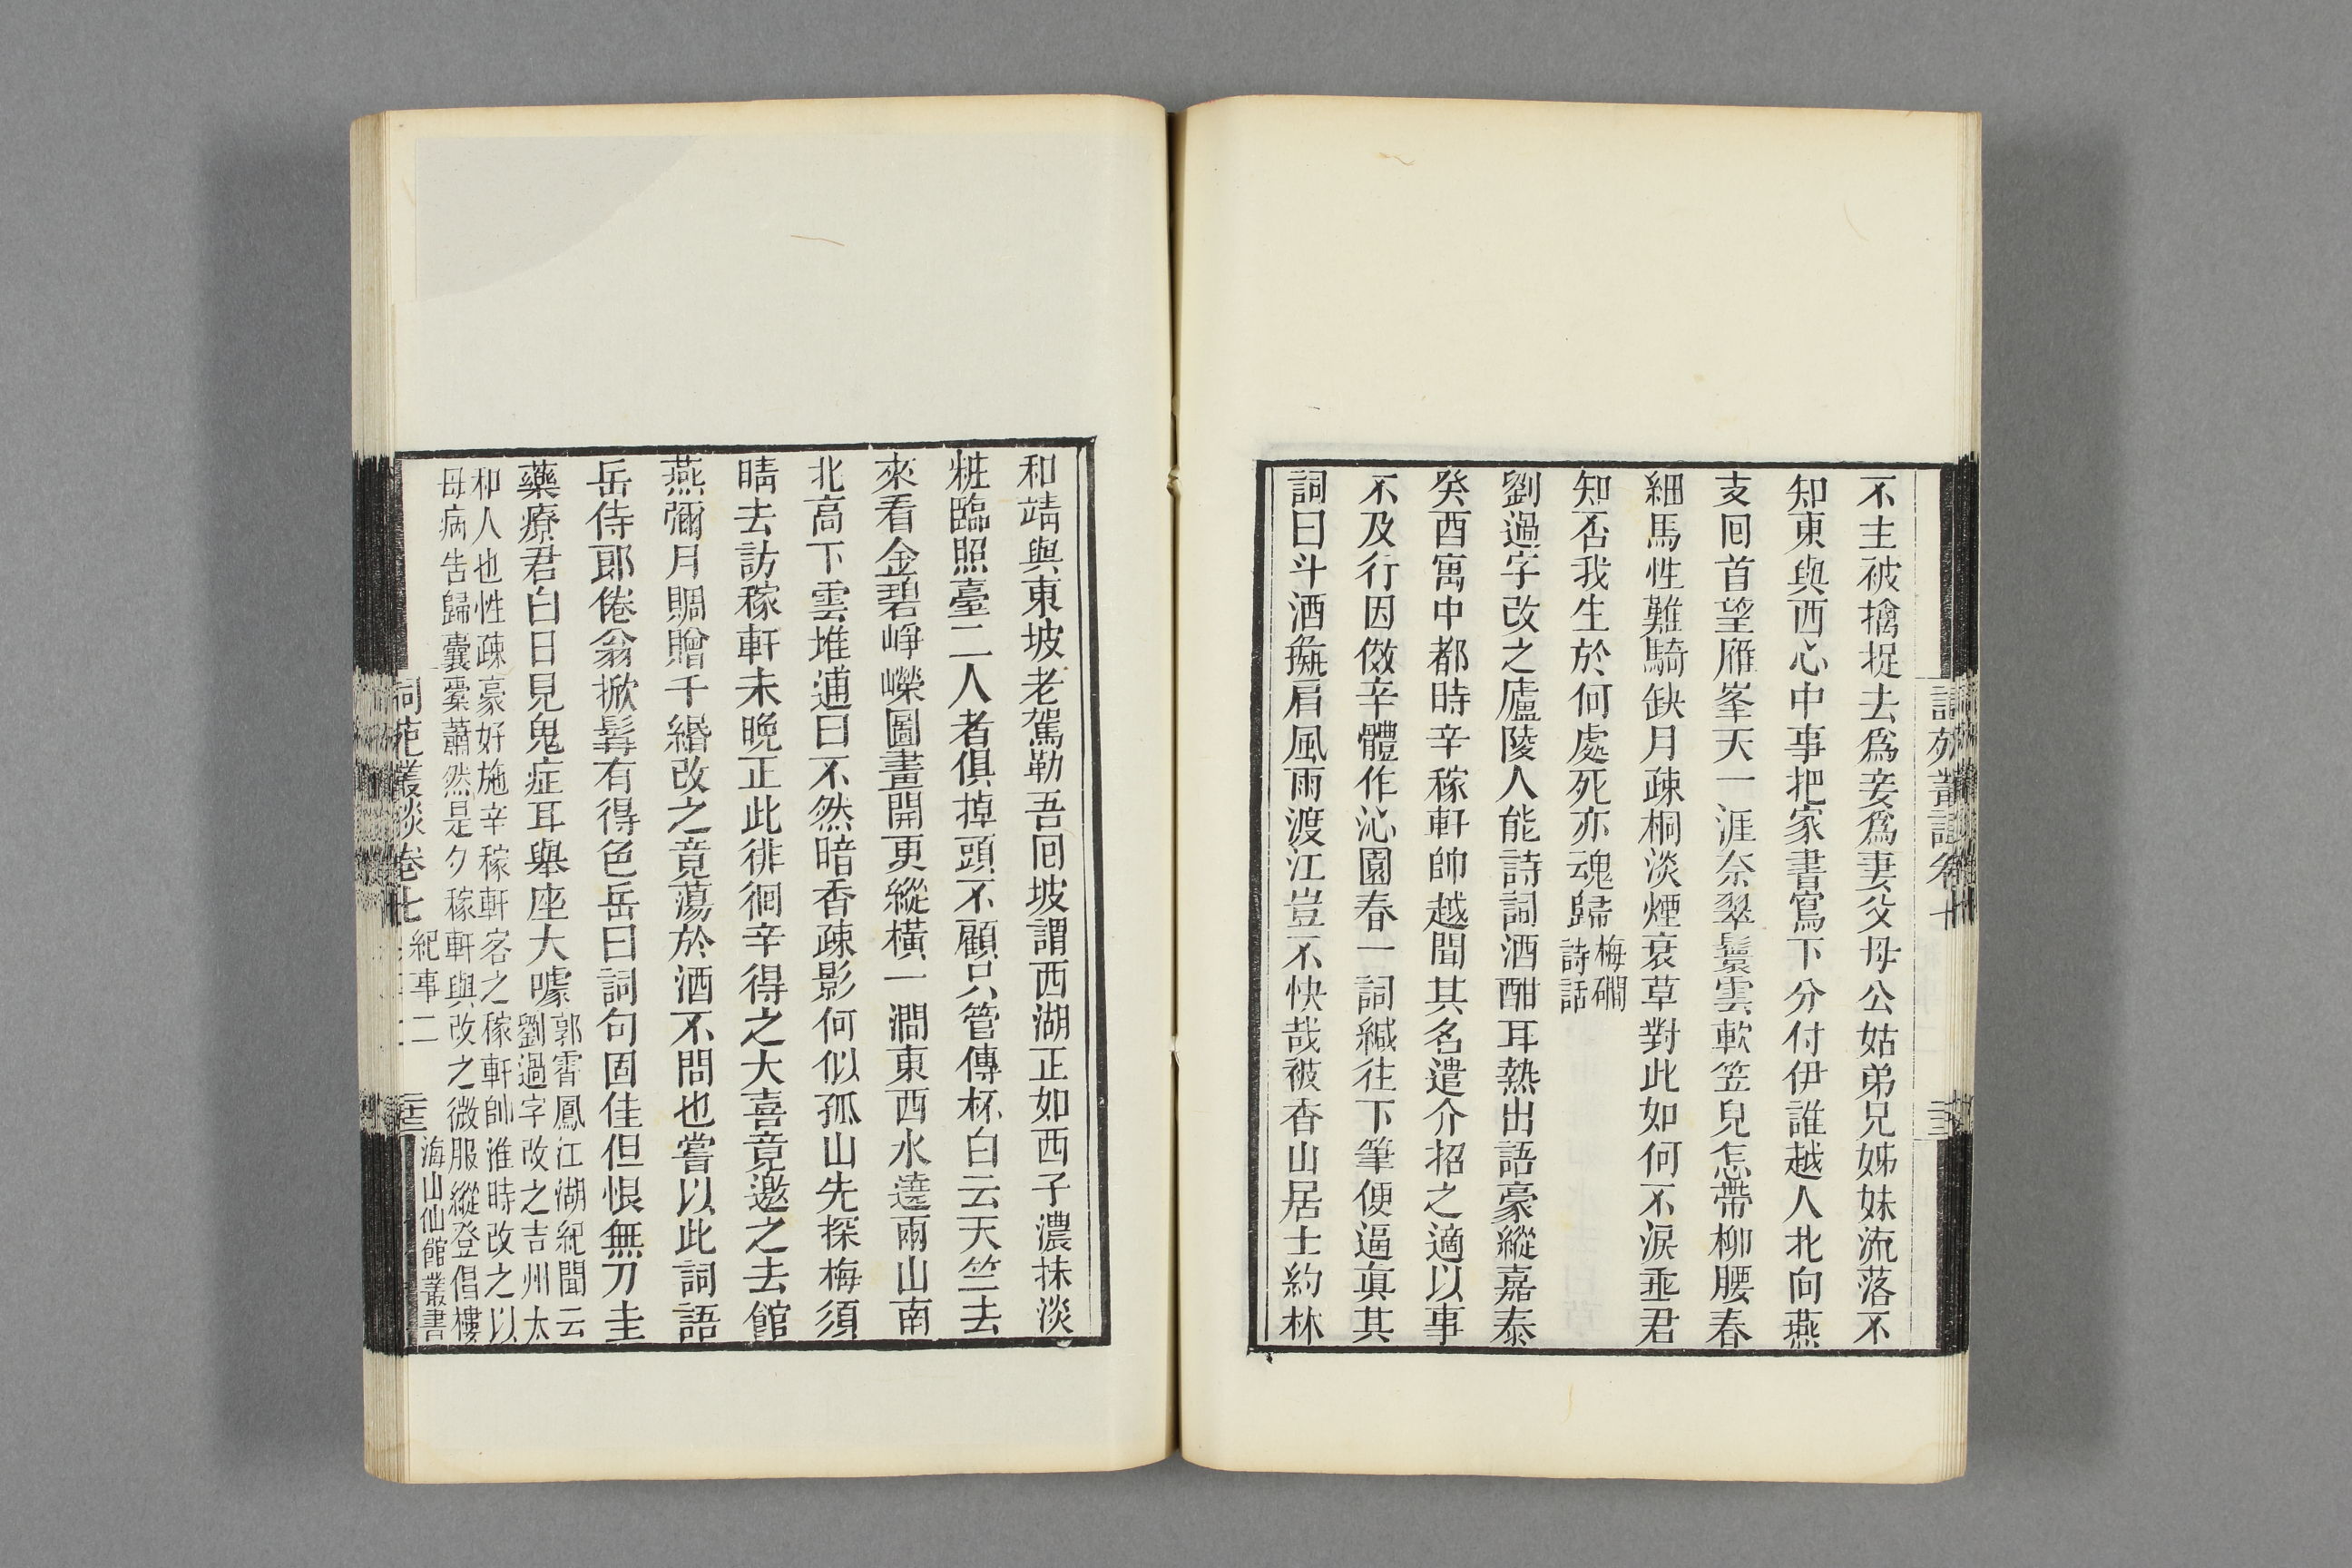 不主被擒捉去爲妾爲妻父母公姑弟兄姊妹流落不
知東與西心中事把家書寫下分付伊誰越人北向燕
支囘首望雁峯天一涯奈翠鬟雲軟笠兒怎帶柳腰春
細馬性難騎缺月疎桐淡煙衰草對此如何不淚垂君
知否我生於何處死亦魂歸
梅磵
詩話
劉過字改之廬陵人能詩詞酒酣耳熱出語豪縱嘉泰
癸酉寓中都時辛稼軒帥越聞其名遣介招之適以事
不及行因傚辛體作沁園春一詞緘往下筆便逼眞其
詞曰斗酒彘肩風雨渡江豈不快哉被香山居士約林
和靖與東坡老駕勒吾囘坡謂西湖正如西子濃抹淡
粧臨照臺二人者俱掉頭不顧只管傳杯白云天竺去
來看金碧崢嶸圖畫開更縱橫一澗東西水遶兩山南
北高下雲堆逋曰不然暗香疎影何似孤山先探梅須
晴去訪稼軒未晚正此徘徊辛得之大喜竟邀之去館
燕彌月賙贈千緡改之竟蕩於酒不問也嘗以此詞語
岳侍郎倦翁掀髯有得色岳曰詞句固佳但恨無刀圭
藥療君白日見鬼症耳舉座大噱
郭霄鳳江湖紀聞云
劉過字改之吉州太
和人也性疎豪好施辛稼軒客之稼軒帥淮時改之以
母病告歸囊橐蕭然是夕稼軒與改之微服縱登倡樓
詞苑叢談卷七
紀事二
海山仙館叢書